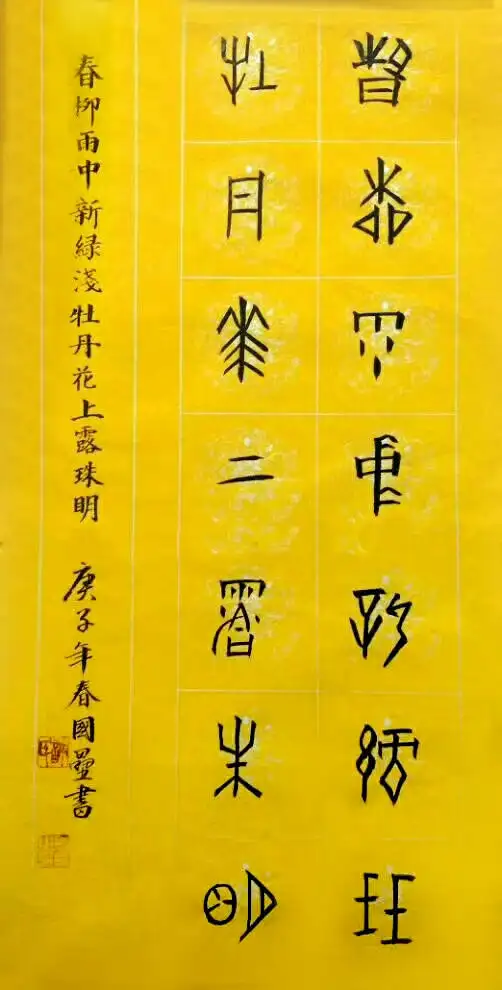 春柳雨中新綠淺
牡丹花上露珠明
春柳雨中新綠淺牡丹花上露珠明 庚子年春國壘書